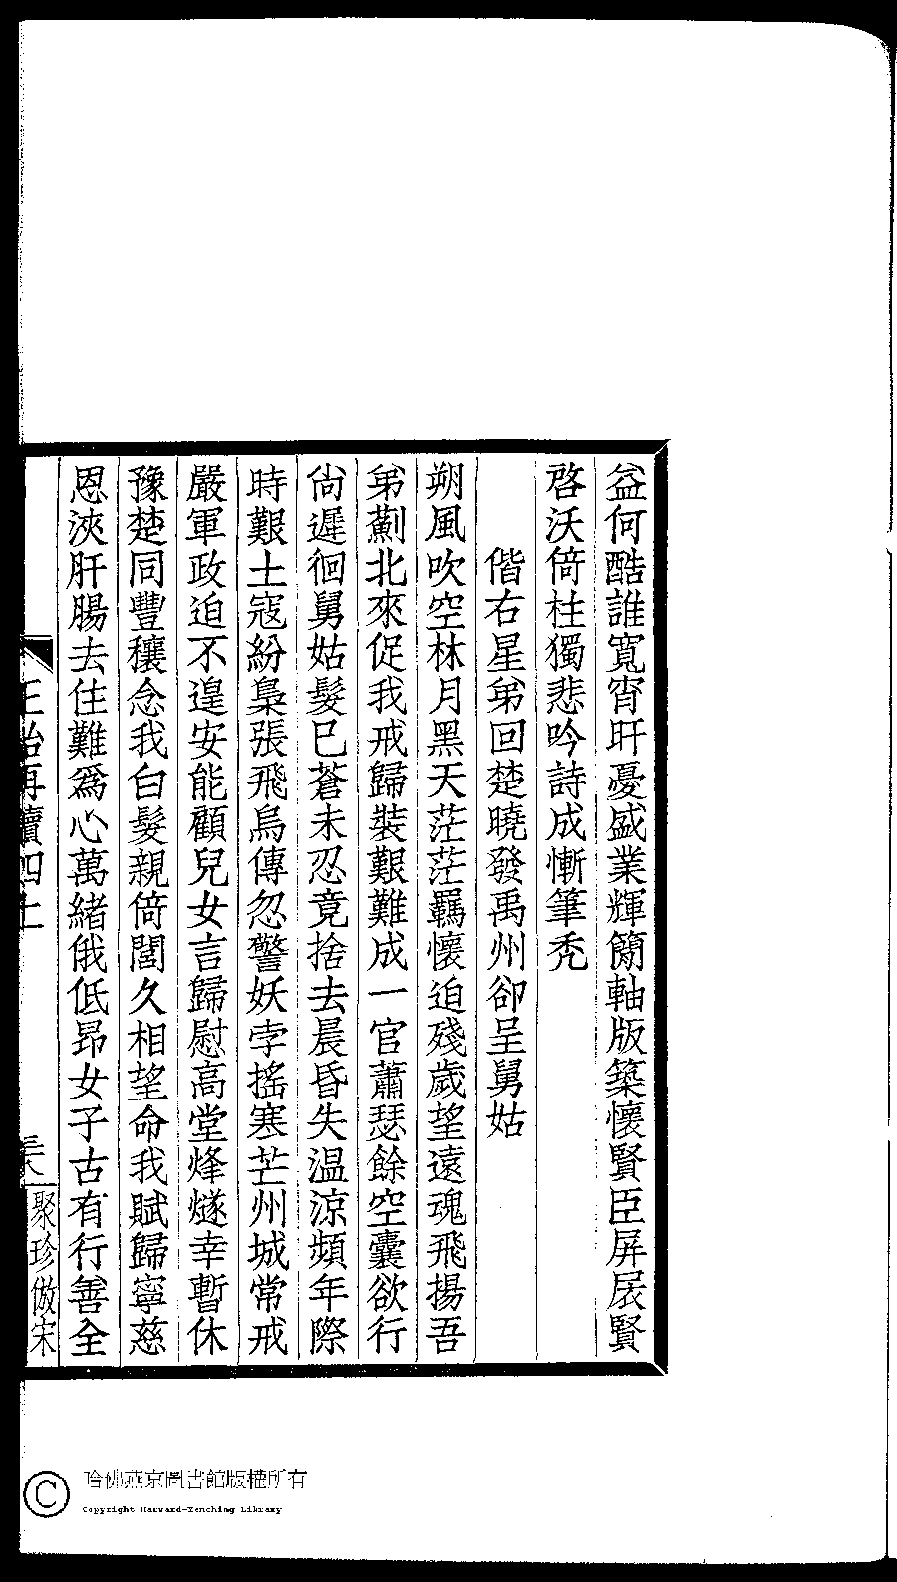 益何酷誰寬宵旰憂盛業輝簡軸版築懷賢臣屏扆賢
啓沃倚柱獨悲吟詩成慚筆禿
偕右星弟回楚曉發禹州卻呈舅姑
朔風吹空林月黑天茫茫羈懷迫殘歲望遠魂飛揚吾
弟薊北來促我戒歸裝艱難成一官蕭瑟餘空囊欲行
尙遲徊舅姑髮已蒼未忍竟捨去晨昏失温涼頻年際
時艱土寇紛梟張飛烏傳忽警妖孛搖寒芒州城常戒
嚴軍政迫不遑安能顧兒女言歸慰高堂烽燧幸暫休
豫楚同豐穰念我白髮親倚閭久相望命我賦歸寧慈
恩浹肝腸去住難爲心萬緒俄低昂女子古有行善全
正始再續四上
聚珍倣宋
哈佛燕京圖書館版權所有
Copyright Harvard-Yenching Library